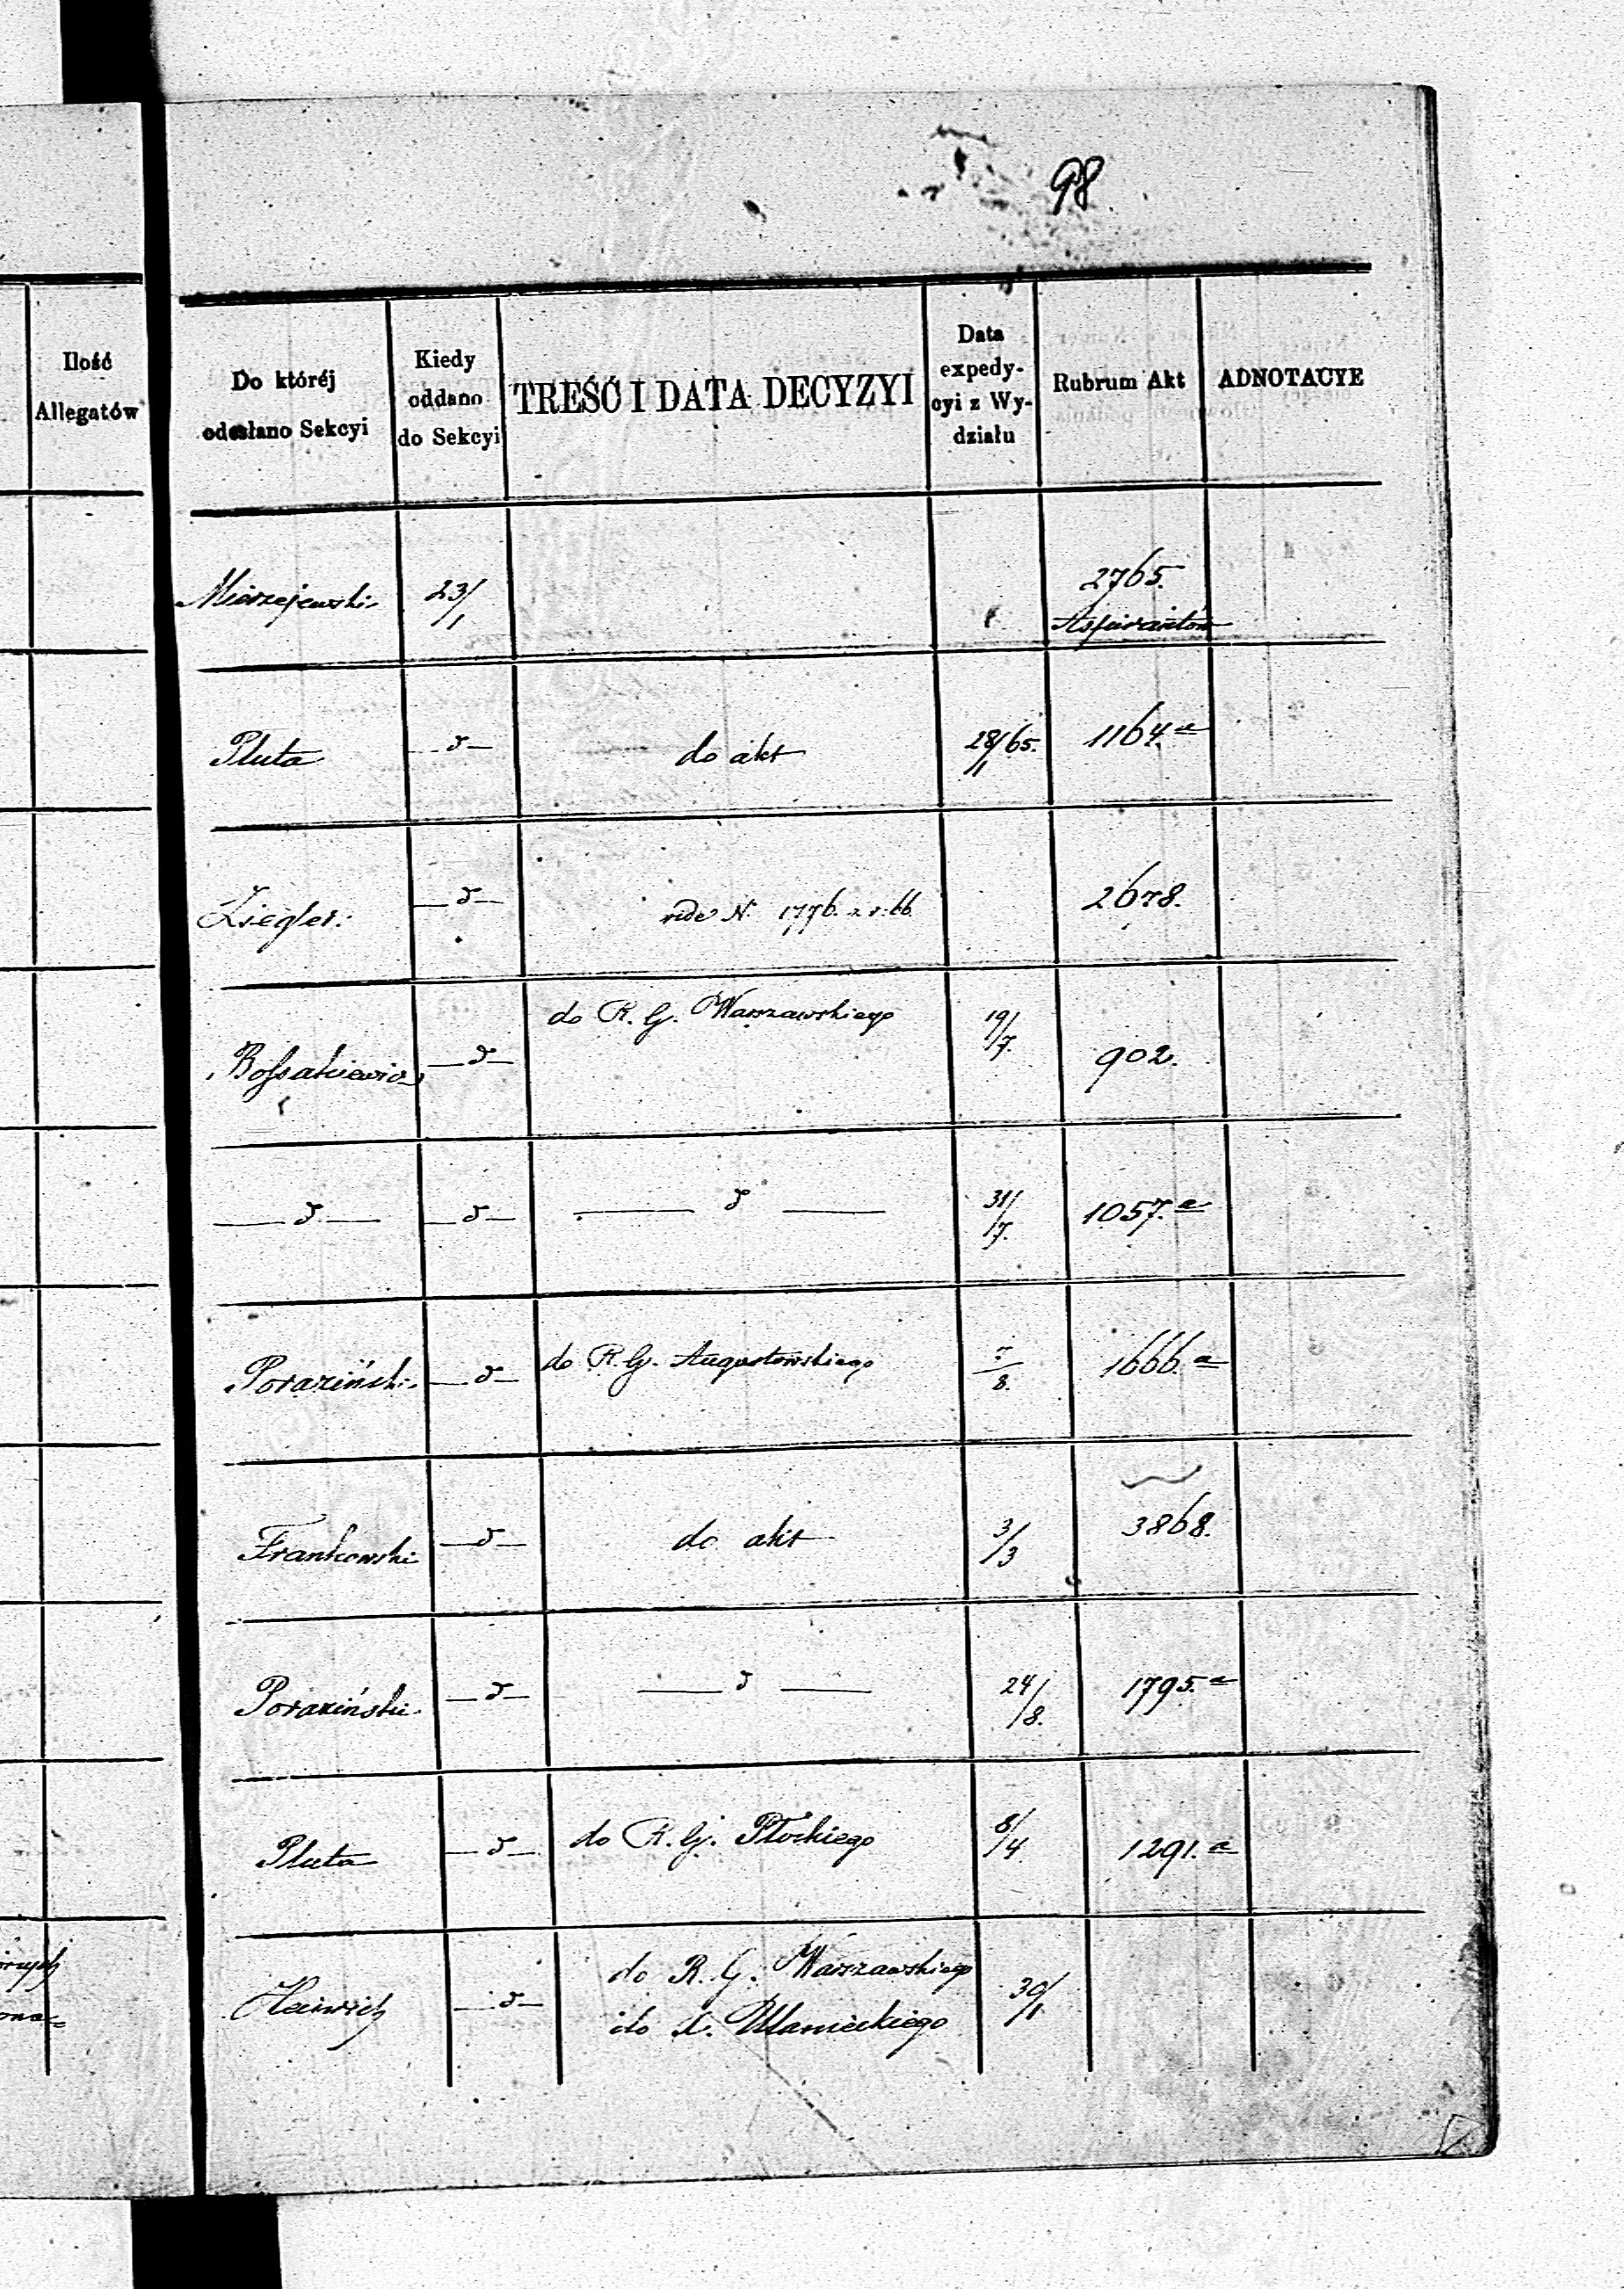 98
Ilość
Allegatów
Do któréj
odesłano Sekcyi
Kiedy
oddano
do Sekcyi
TREŚĆ I DATA DECYZYI
Data
expedy-
cyi z Wy-
działu
Rubrum Akt
ADNOTACYE
Mierzejewski 23/1 2765.
Aspirantów
Pluta — d — do akt 28/1 65. 1164.a
Ziegler. — d — vide N. 1776. z r. 66. 2678.
Bossakiewicz — d — do R. G. Warszawskiego 19/7. 902.
— d — — d — — d — 31/7. 1057.a
Poraziński — d — do R. G. Augustowskiego 7/8. 1666.a
Frankowski — d — do akt 3/3 3868.
Poraziński — d — — d — 24/8. 1795.a
Pluta — d — do R. G. Płockiego 8/4 1291.a
Heinrich — d — do R. G. Warszawskiego 30/1
i do X. Ulanieckiego